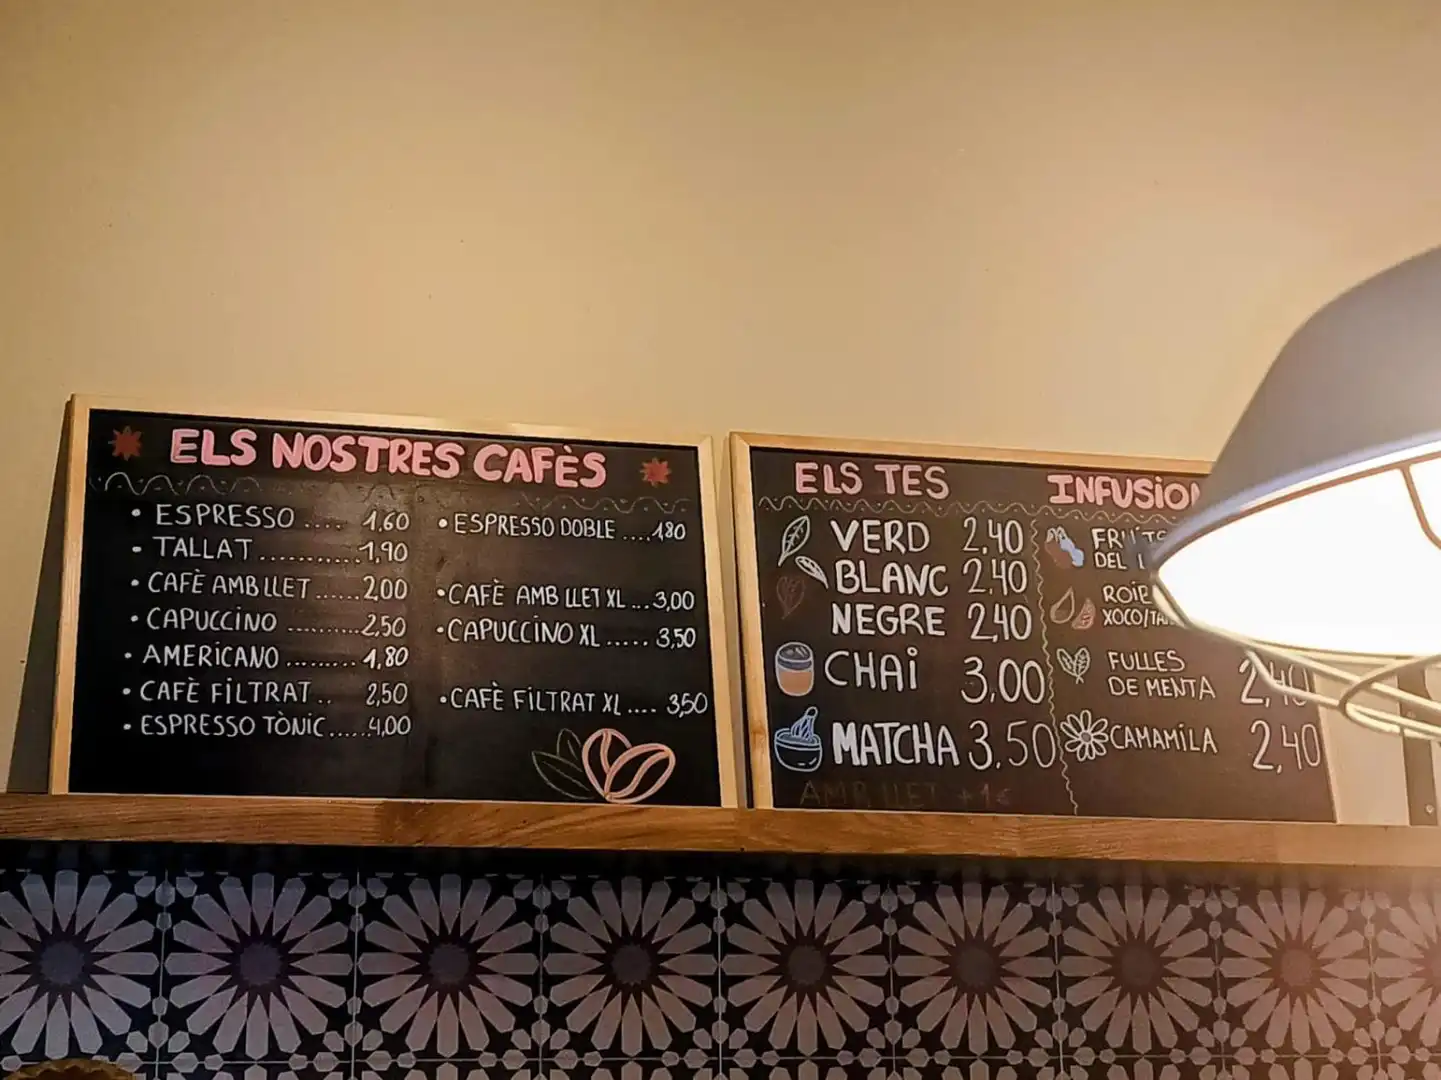 ELS NOSTRES CAFÈS
• ESPRESSO .... 1,60
• TALLAT ........... 1,90
• CAFÈ AMB LLET ...... 2,00
• CAPUCCINO .......... 2,50
• AMERICANO ......... 1,80
• CAFÈ FILTRAT .. 2,50
• ESPRESSO TÒNIC ..... 4,00
• ESPRESSO DOBLE .... 1,80
• CAFÈ AMB LLET XL ... 3,00
• CAPUCCINO XL ..... 3,50
• CAFÈ FILTRAT XL .... 3,50
ELS TES
VERD 2,40
BLANC 2,40
NEGRE 2,40
CHAI 3,00
MATCHA 3,50
AMB LLET +1€
FRUITS
DEL
XOCO/
FULLES
DE MENTA 2,40
CAMAMÍLA 2,40